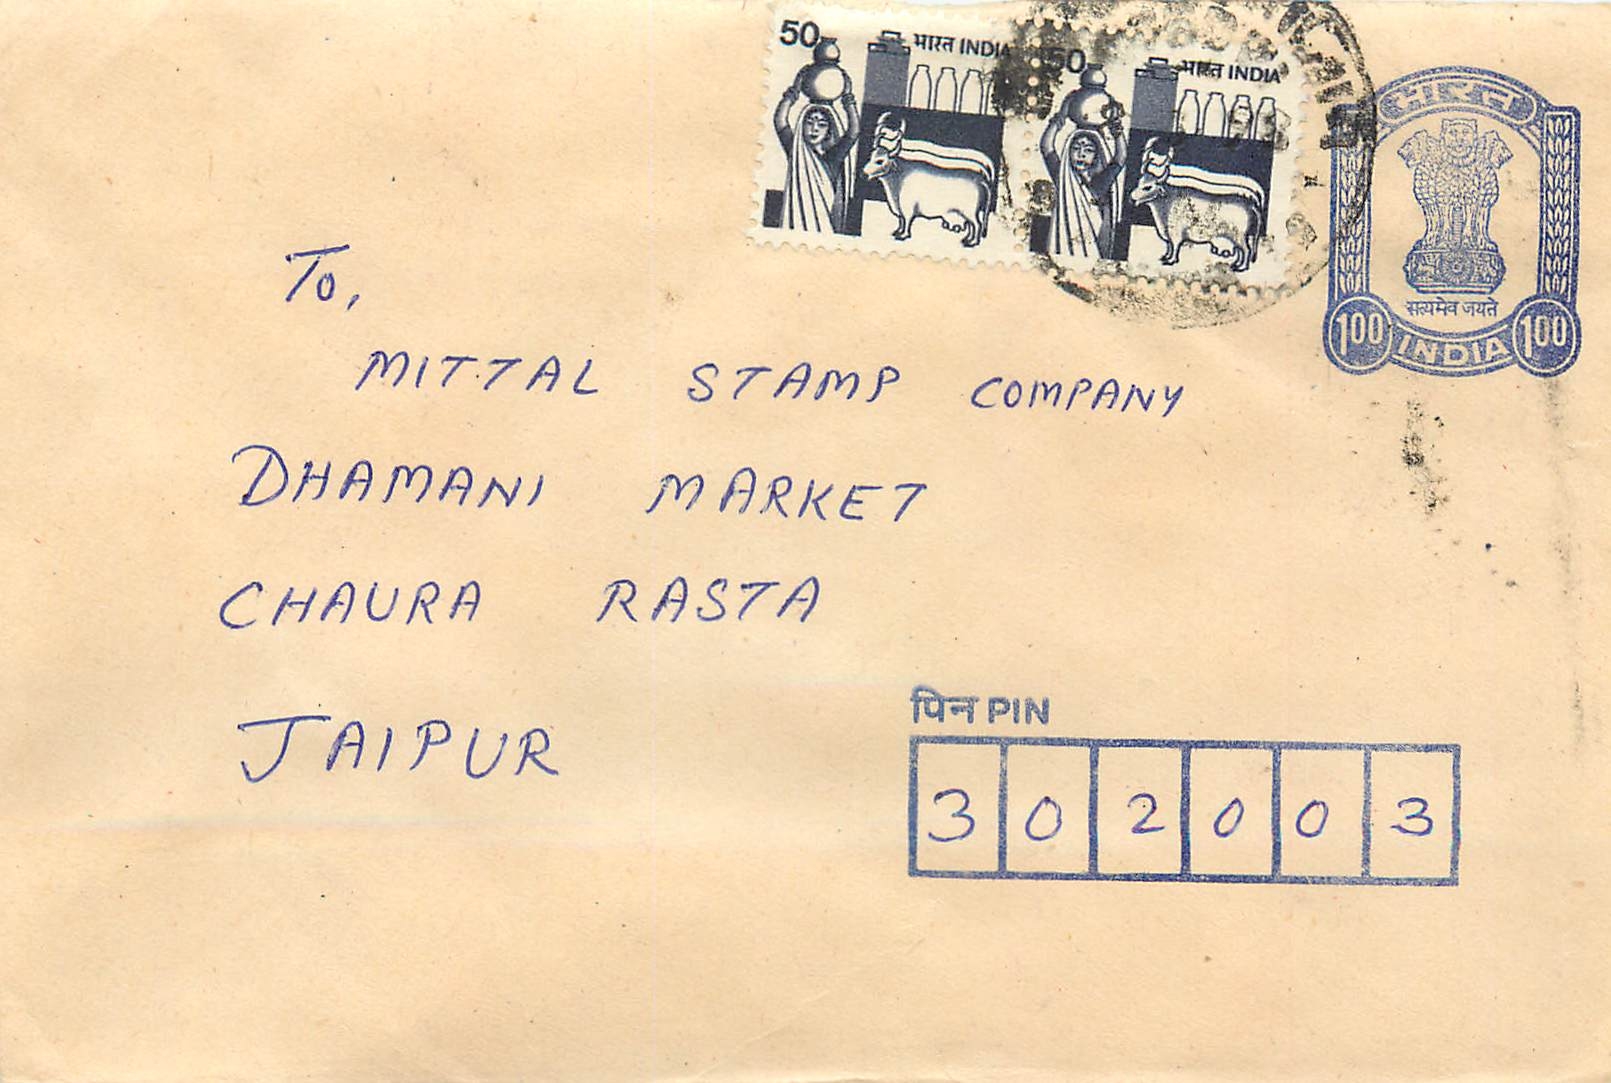 50 भारत INDIA
50 भारत INDIA
भारत
सत्यमेव जयते
100 INDIA 100
To,
MITTAL STAMP COMPANY
DHAMANI MARKET
CHAURA RASTA
JAIPUR
पिन PIN
302003